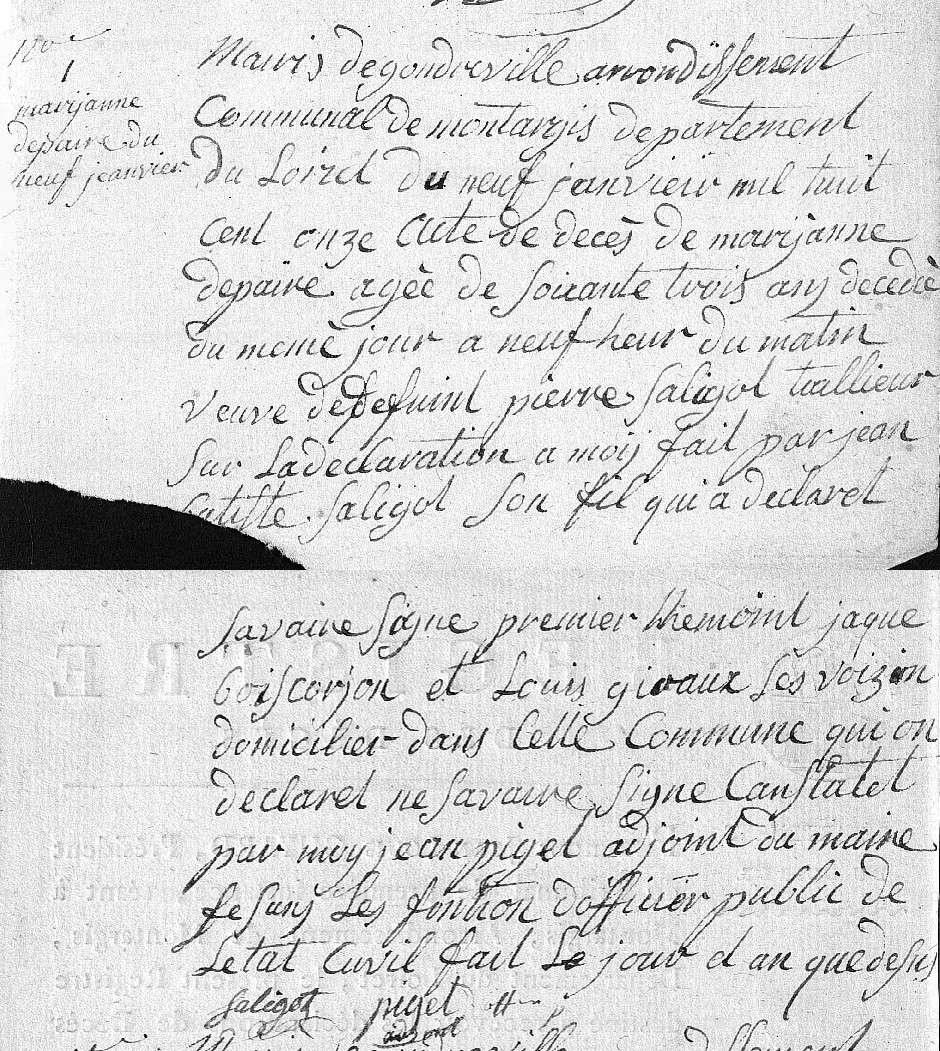 1
marijanne
depaire du
neuf jeanvier
Mairis degondreville arrondissement
Communal de montargis departement
du Loiret du neuf janvieir mil huit
cent onze Acte de decès de marijanne
depaire agèè de soixante trois ans decedèè
du memè jour a neuf heur du matin
veuve de defuint pierre Saligot taillieur
sur Ladeclaration a moij fait par jean
batiste Saligot son fil qui a declaret
savaire signe premier themoint jaque
boiscorjon et Louis giraux sès voizin
domicilier dans Cellè Commune qui on
declaret ne savaire signe Canstatet
par moy jean piget adjoint du maire
fesans Les fontion dofficiier public de
Letat Civil fait Le jour et an que desus
Saligot piget